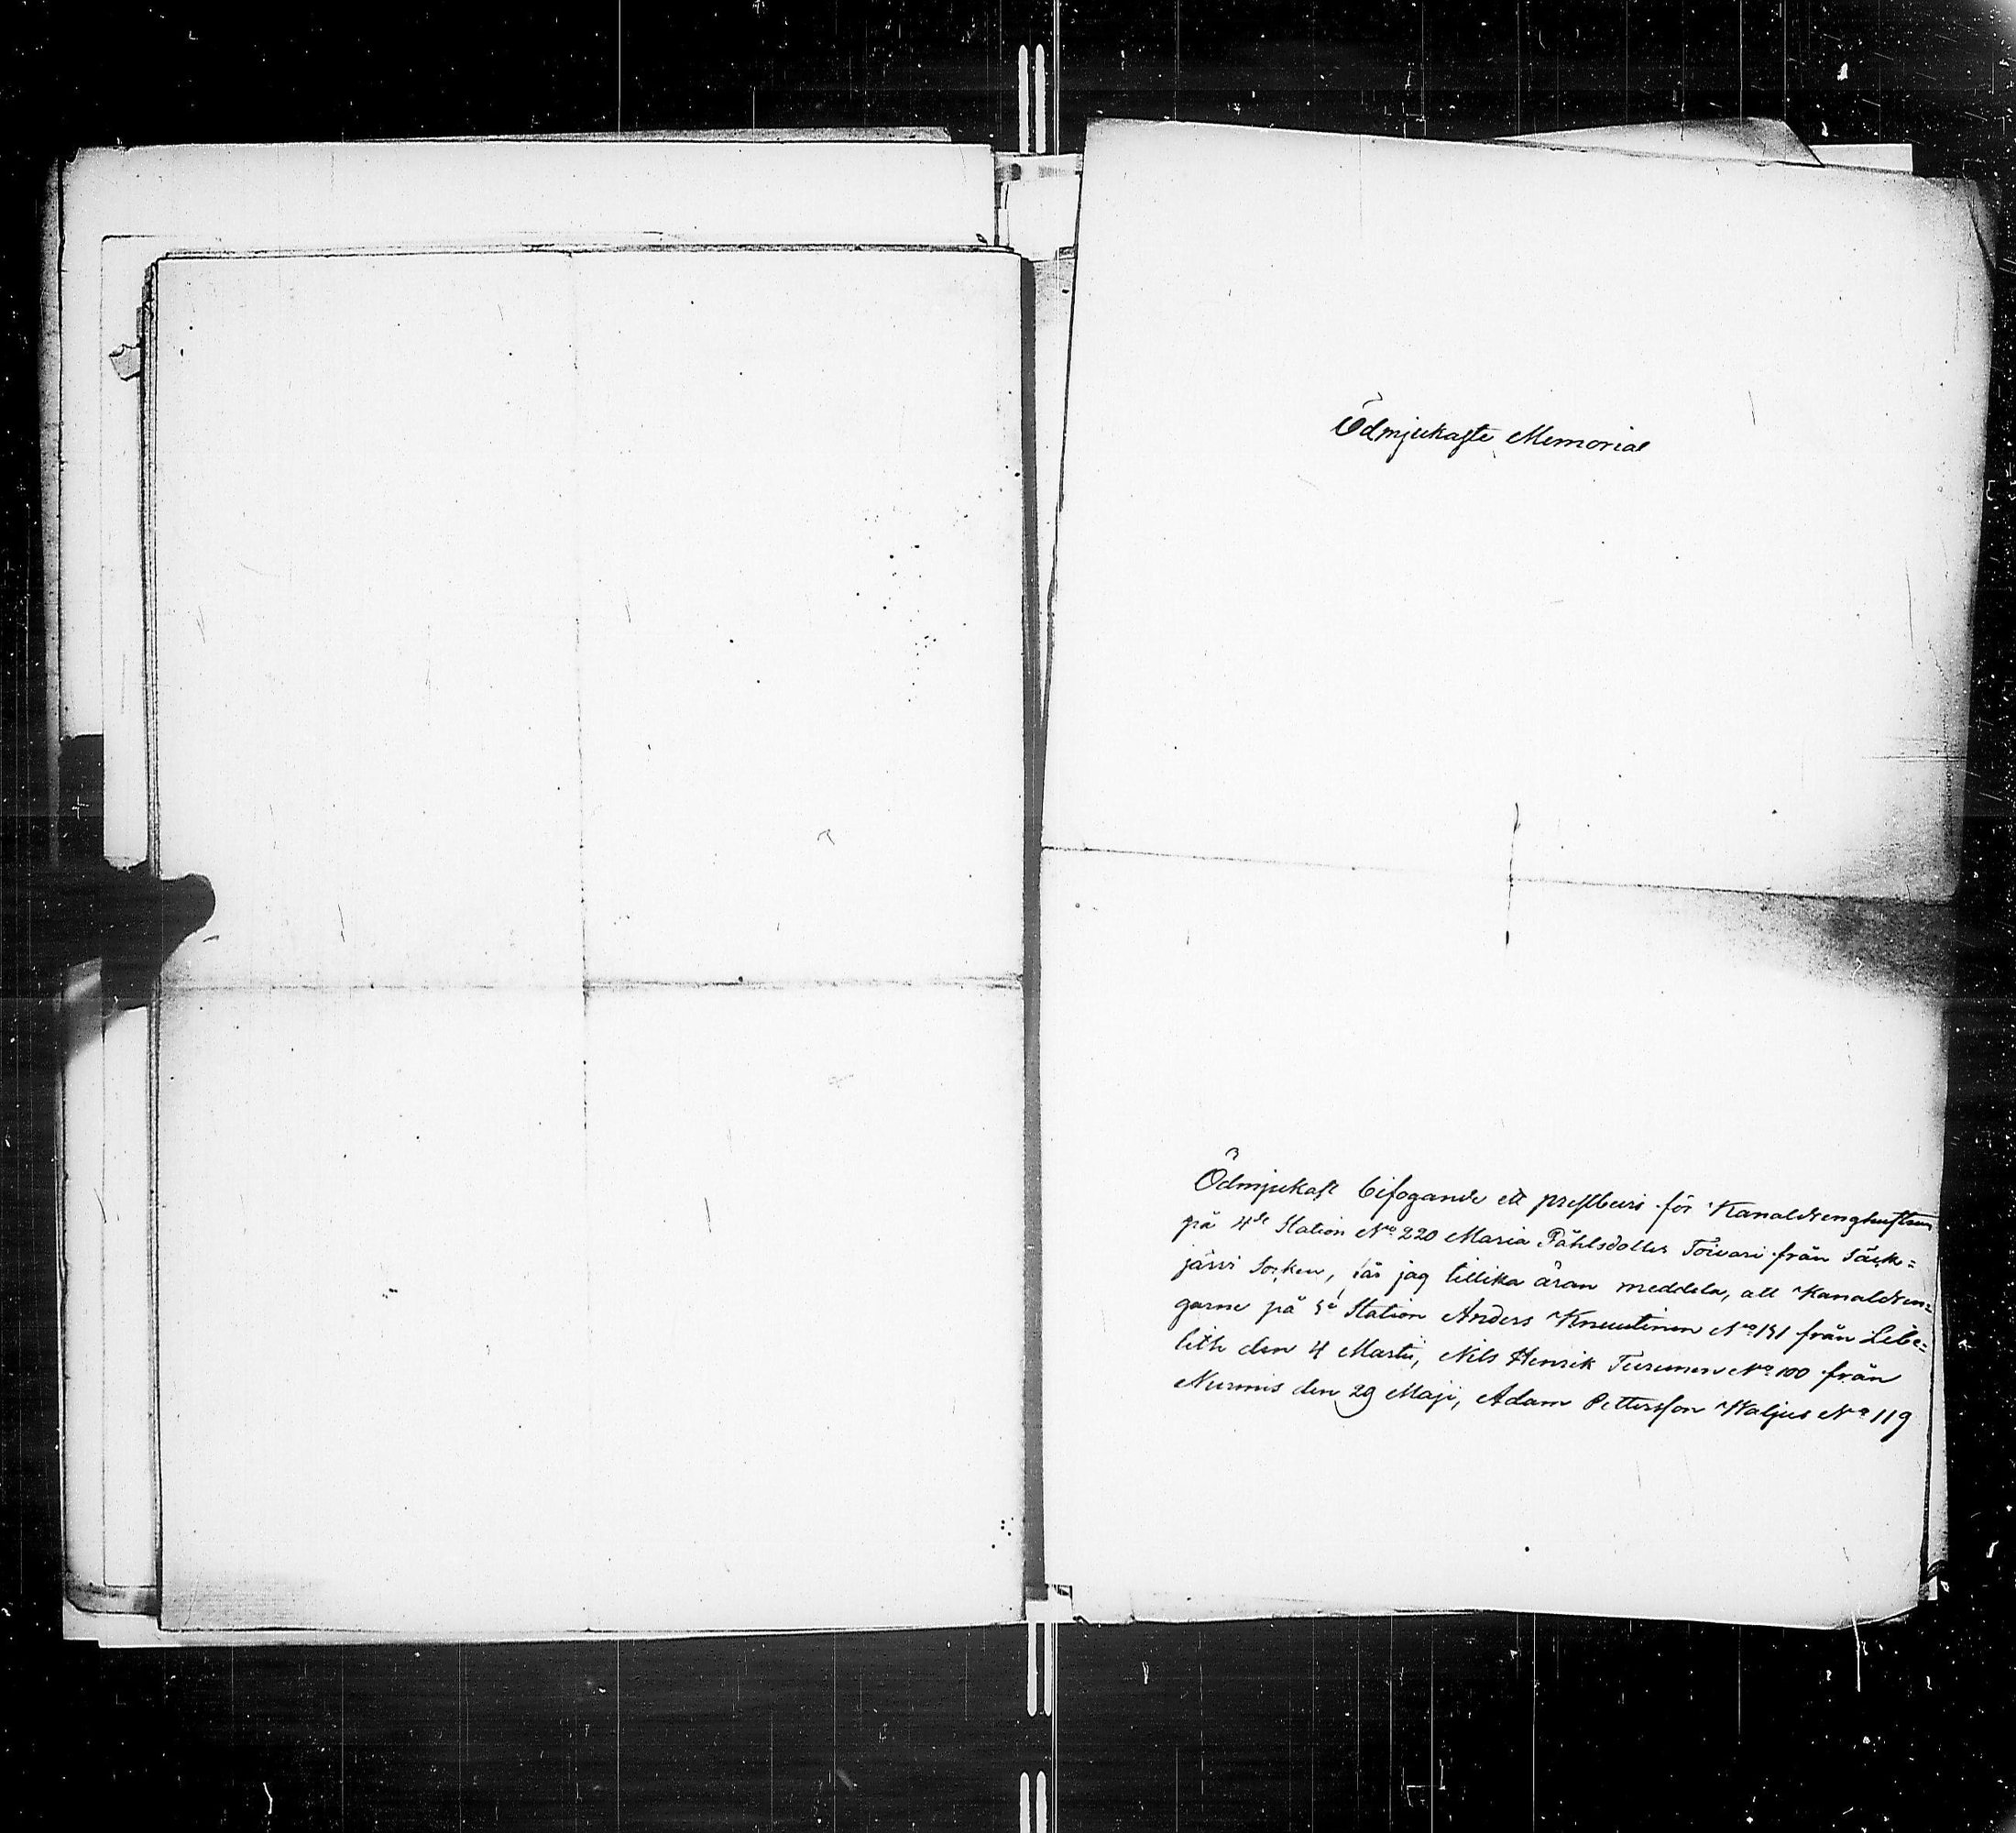 Ödmjukaste Memorial
Ödmjukast bifogande ett prestbevis för Kanaldrenghustrun
på 4de Station No 220 Maria Påhlsdotter Toivari från Säck=
järvi Socken, får jag tillika äran meddela, att Kanaldren=
garne på 5e Station Anders Knuutinen No 151 från Libe=
lith den 4 Martii, Nils Henrik Turunen No 100 från
Nurmis den 29 Maji, Adam Pettersson Waljus No 119